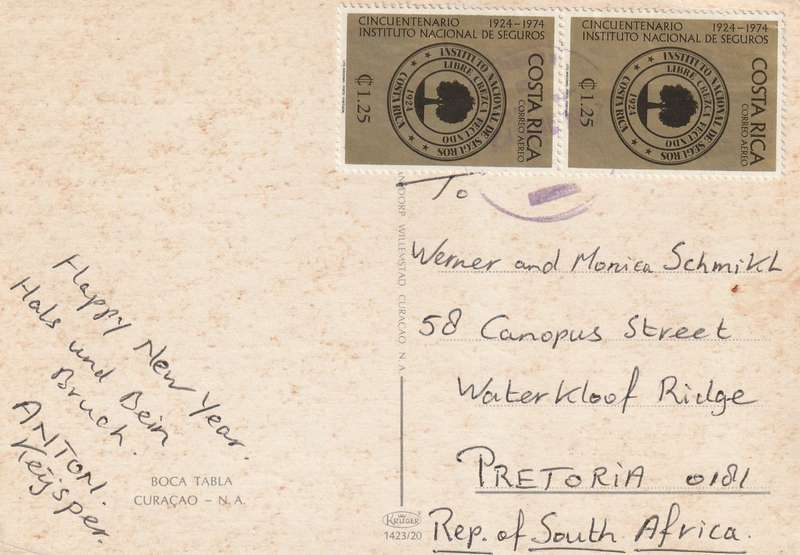 CINCUENTENARIO 1924-1974
INSTITUTO NACIONAL DE SEGUROS
COSTA RICA
CORREO AEREO
₡1.25
INSTITUTO NACIONAL DE SEGUROS
COSTA RICA
LIBRE CREZCA FECUNDO
1924
CINCUENTENARIO 1924-1974
INSTITUTO NACIONAL DE SEGUROS
COSTA RICA
CORREO AEREO
₡1.25
INSTITUTO NACIONAL DE SEGUROS
COSTA RICA
LIBRE CREZCA FECUNDO
1924
Happy New Year.
Hals und Bein
Bruch.
ANTON.
Keijsper.
BOCA TABLA
CURAÇAO – N.A.
WILLEMSTAD CURAÇAO N.A.
KRÜGER
1423/20
To
Werner and Monica Schmikl
58 Canopus Street
Waterkloof Ridge
PRETORIA 0181
Rep. of South Africa.